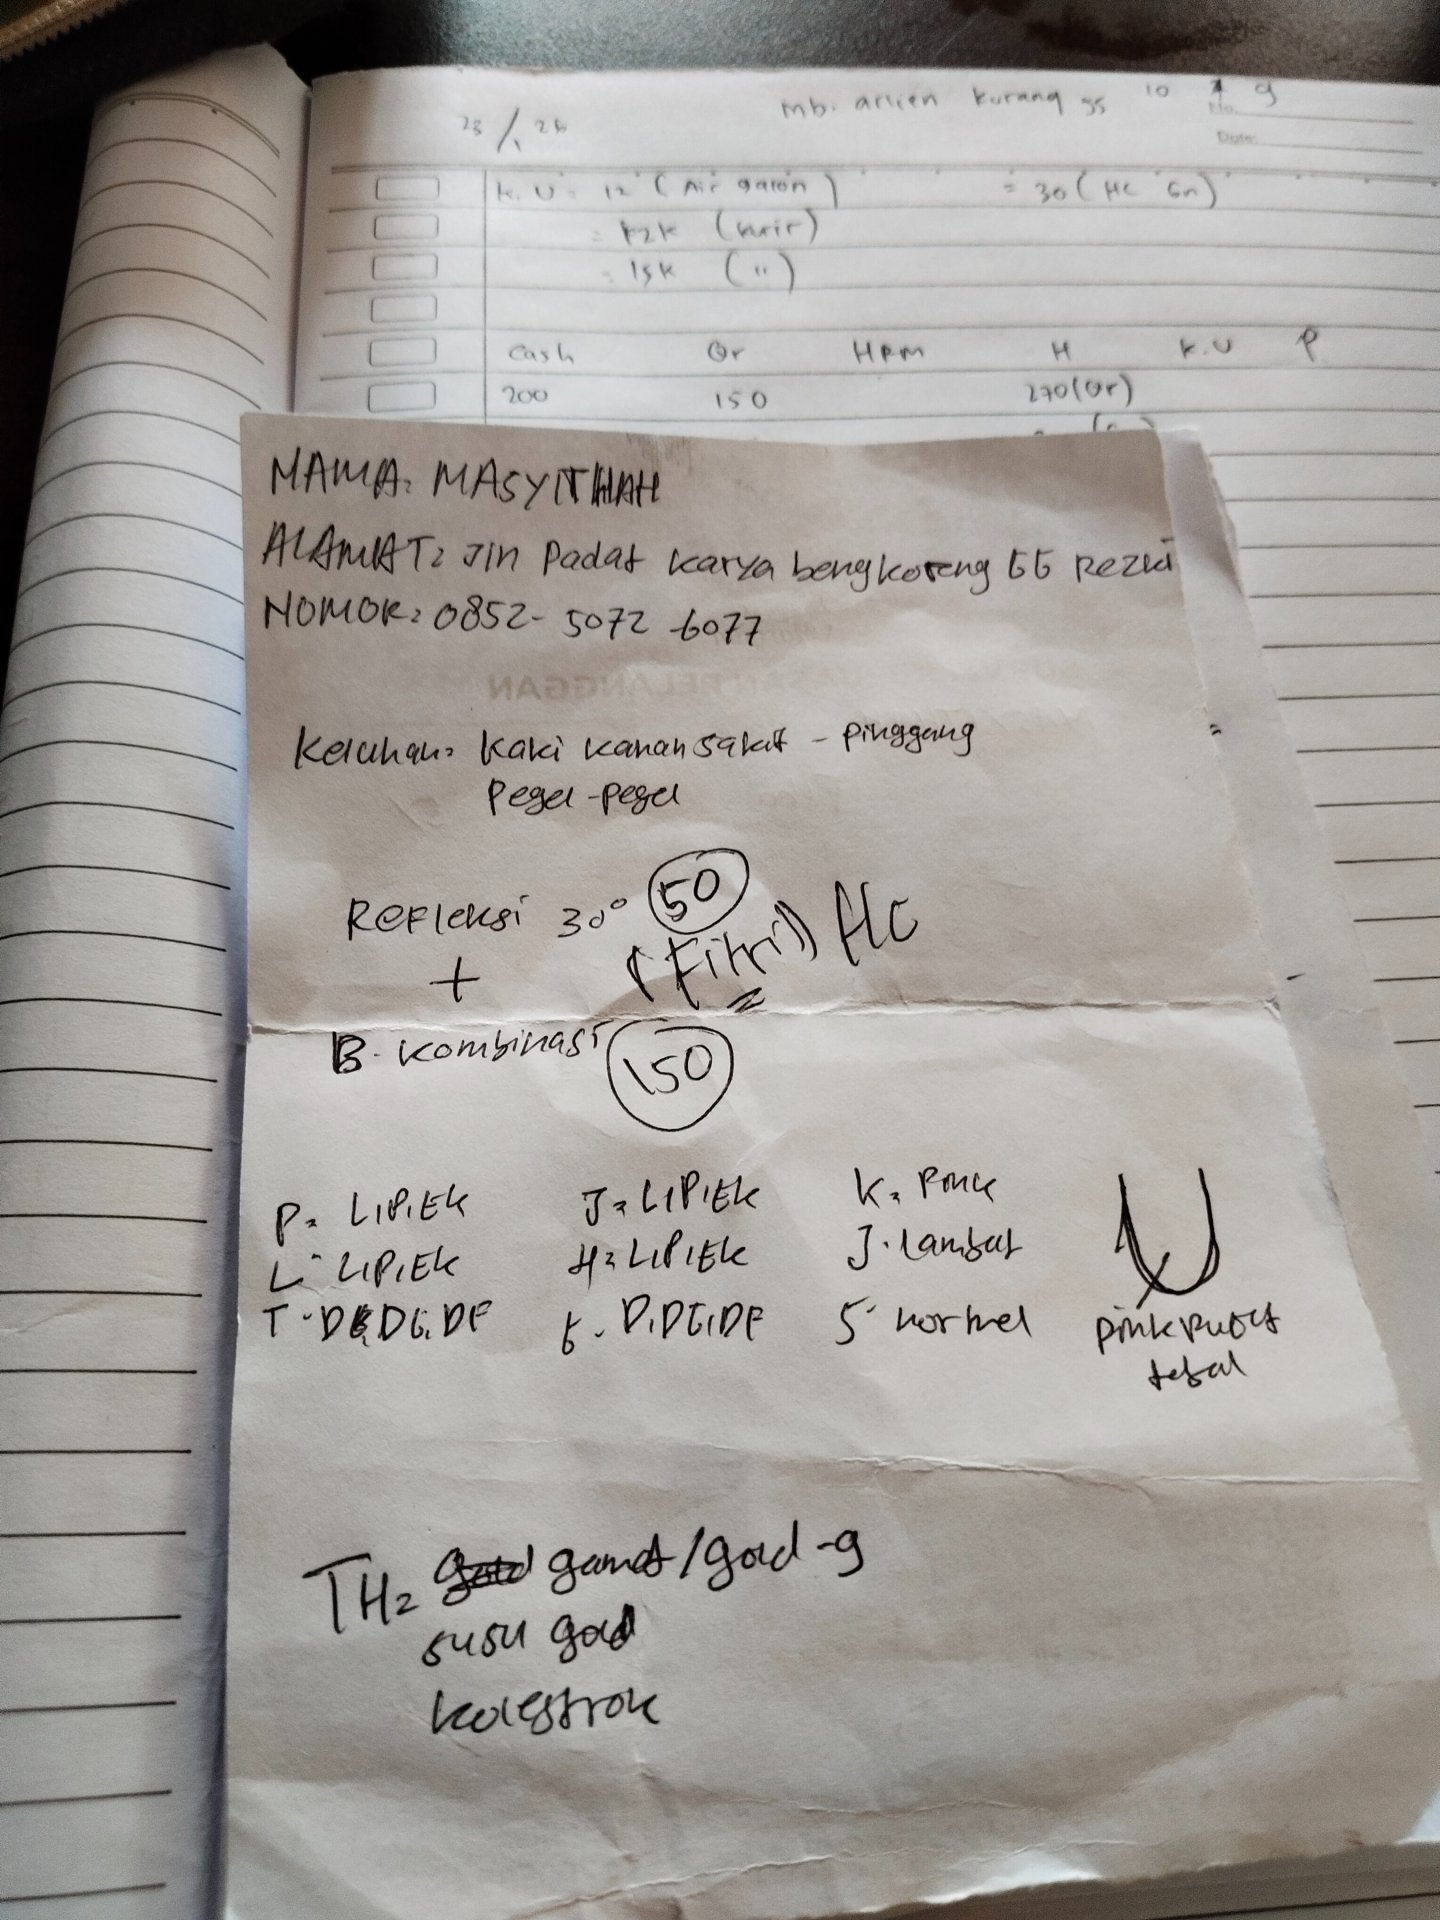 mb. arien kurang 35 10 g
No.
Date:
23 / 1 26
K.U = 12 (Air galon) = 30 (HC Gn)
= 12k (kurir)
= 15k (")
Cash Qr HPM H K.U P
200 150 270 (Qr)
NAMA: MASYITHAH
ALAMAT: Jln Padat karya bengkoreng GG Rezki
NOMOR: 0852-5072-6077
PELANGGAN
Keluhan: Kaki kanan sakit - pinggang
Pegel-pegel
Refleksi 30° 50
+ (Fitri) HC
B. kombinasi 150
P: LI,PI,EK J: LI,PI,EK K: Pink
L: LI,PI,EK H: LI,PI,EK J. Lambat
T. DG,DF G. DI,DG,DF S. normal pink putih
tebal
TH: gamat/gold-g
susu gold
kolestrok